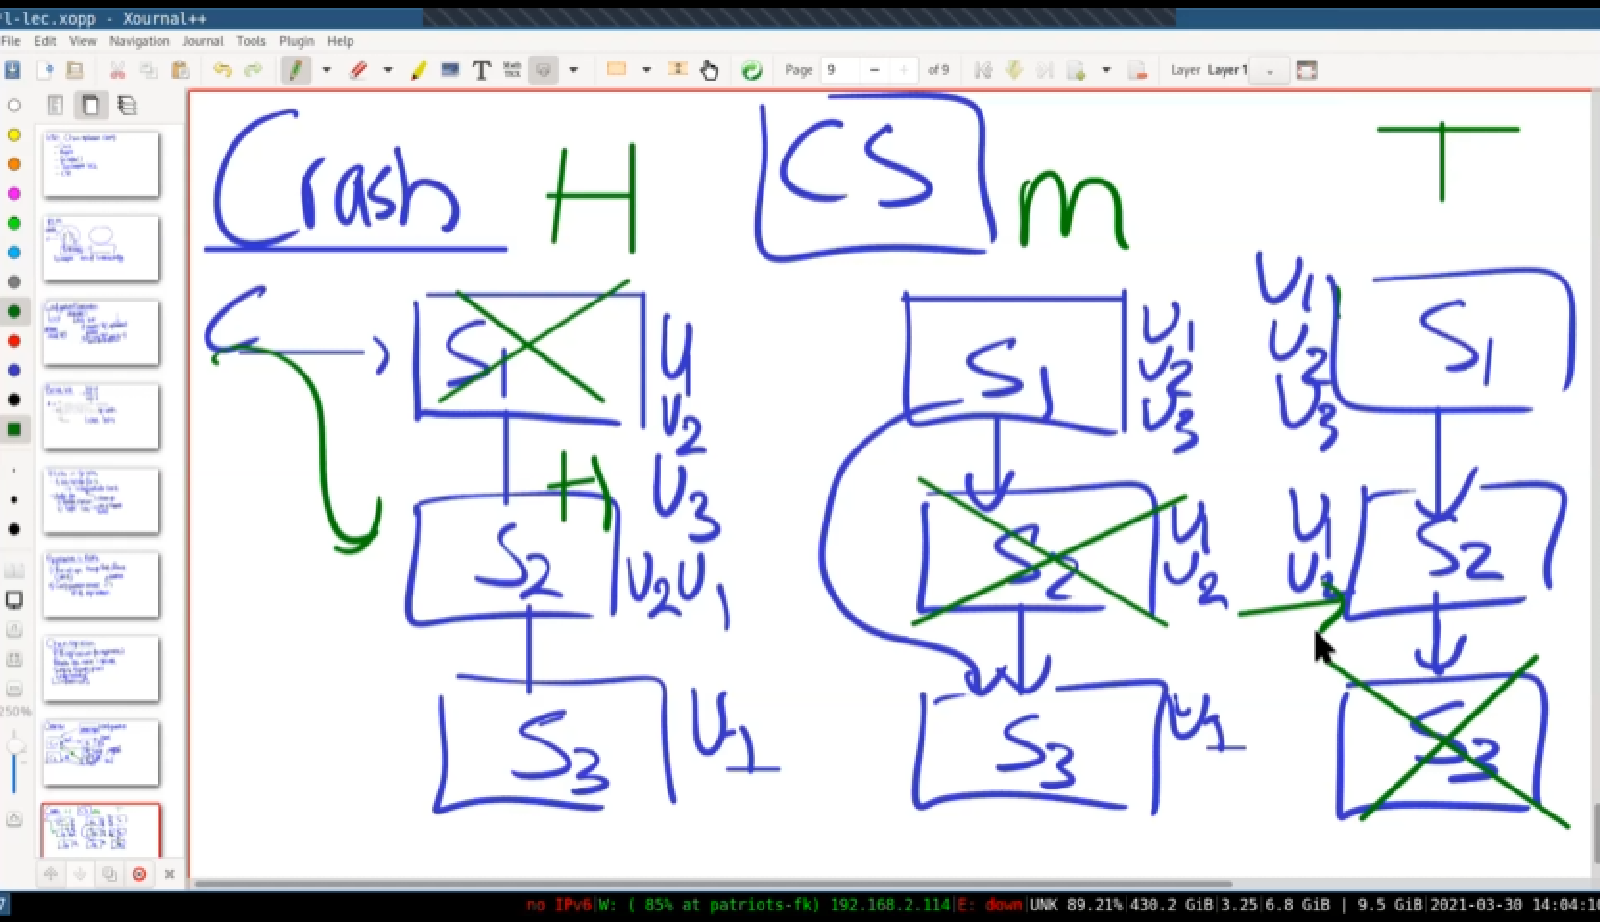 'l-lec.xopp - Xournal++
File Edit View Navigation Journal Tools Plugin Help
Page 9 of 9 Layer Layer 1
Crash H CS m T
C
S1
U1
U2
U3
H
S2
U2 U1
S3
U1
S1
U1
U2
U3
S2
U1
U2
S3
U1
U1
U2
U3
S1
U1
U2
S2
S3
250%
no IPv6|W: ( 85% at patriots-fk) 192.168.2.114|E: down|UNK 89.21%|430.2 GiB|3.25|6.8 GiB | 9.5 GiB|2021-03-30 14:04:1